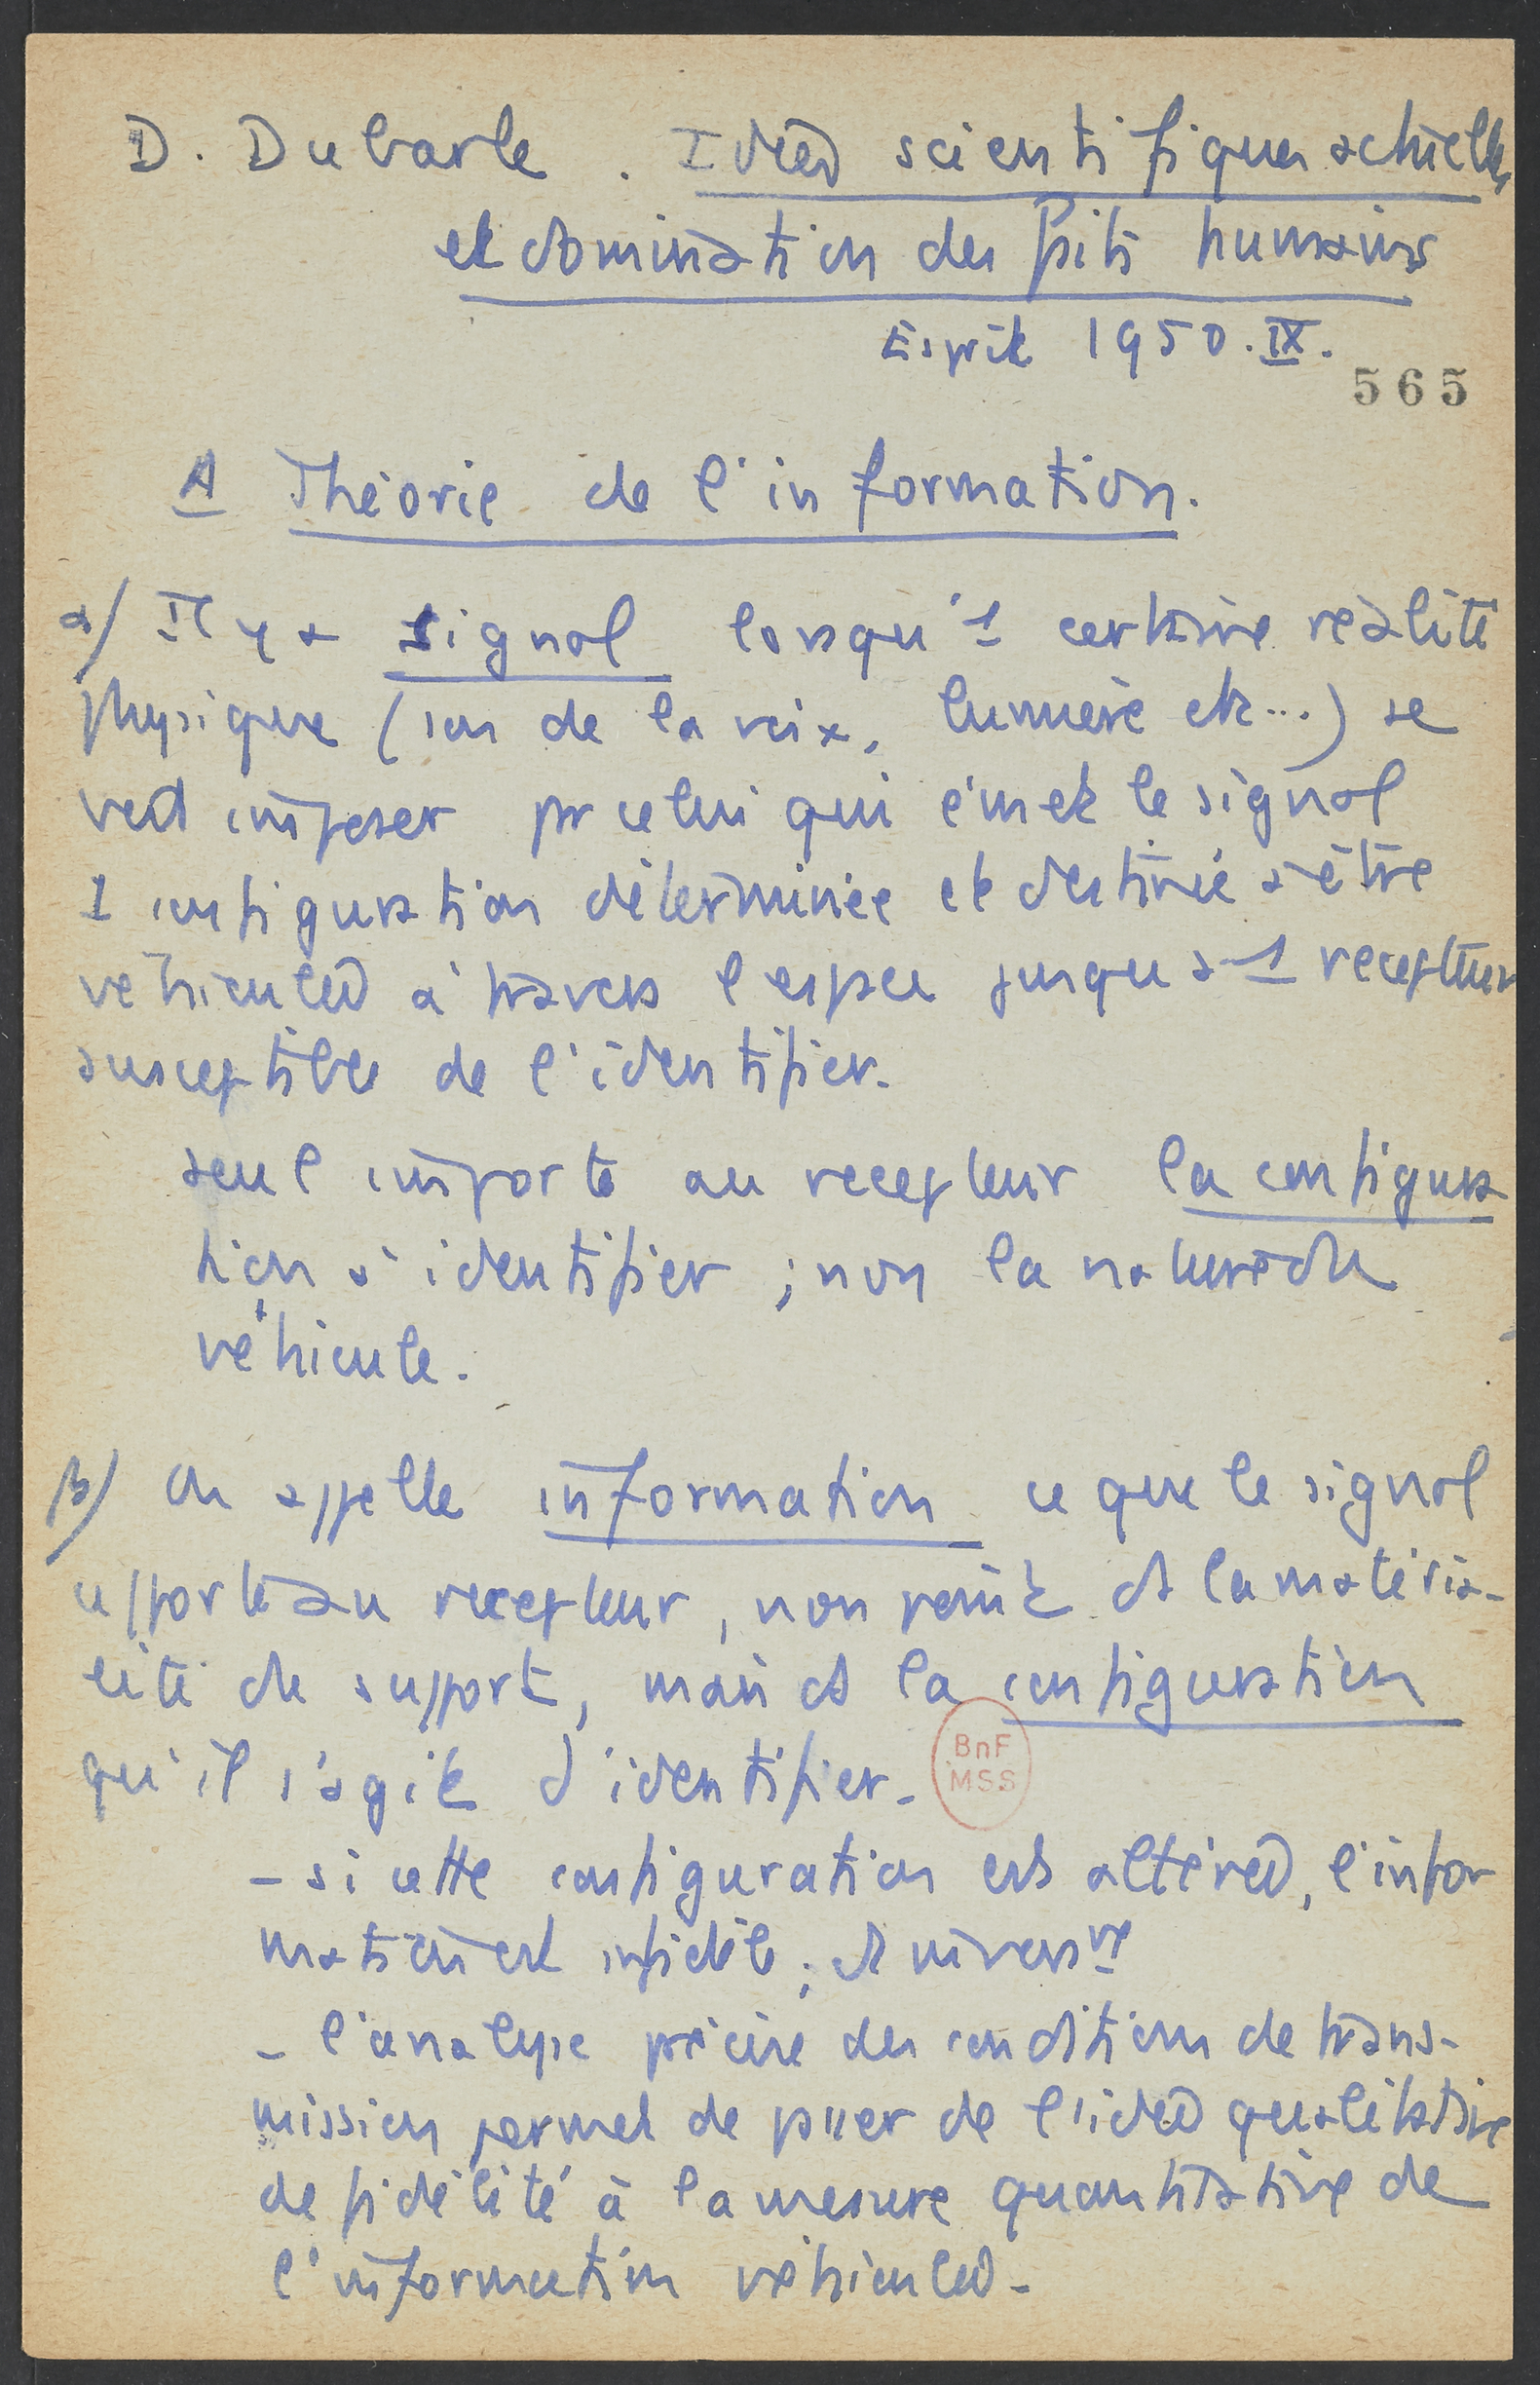 D. Dubarle. Idées scientifiques actuelles
et domination des faits humains
Esprit 1950.IX.
565
A Théorie de l'information.
α/ Il y a signal lorsqu'1 certaine réalité
physique (son de la voix, lumière etc...) se
voit imposer pr celui qui émet le signal
1 configuration déterminée et destinée à être
véhiculée à travers l'espace jusqu'à 1 récepteur
susceptible de l'identifier.
seul importe au récepteur la configura
tion à identifier ; non la nature du
véhicule.
β/ On appelle information ce que le signal
apporte au récepteur, non point ds la matéria-
lité du support, mais ds la configuration
qu'il s'agit d'identifier.
BnF
MSS
- si cette configuration est altérée, l'infor
mation est infidèle ; et invers nt
- l'analyse précise des conditions de trans-
mission permet de passer de l'idée qualitative
de fidélité à la mesure quantitative de
l'information véhiculée.